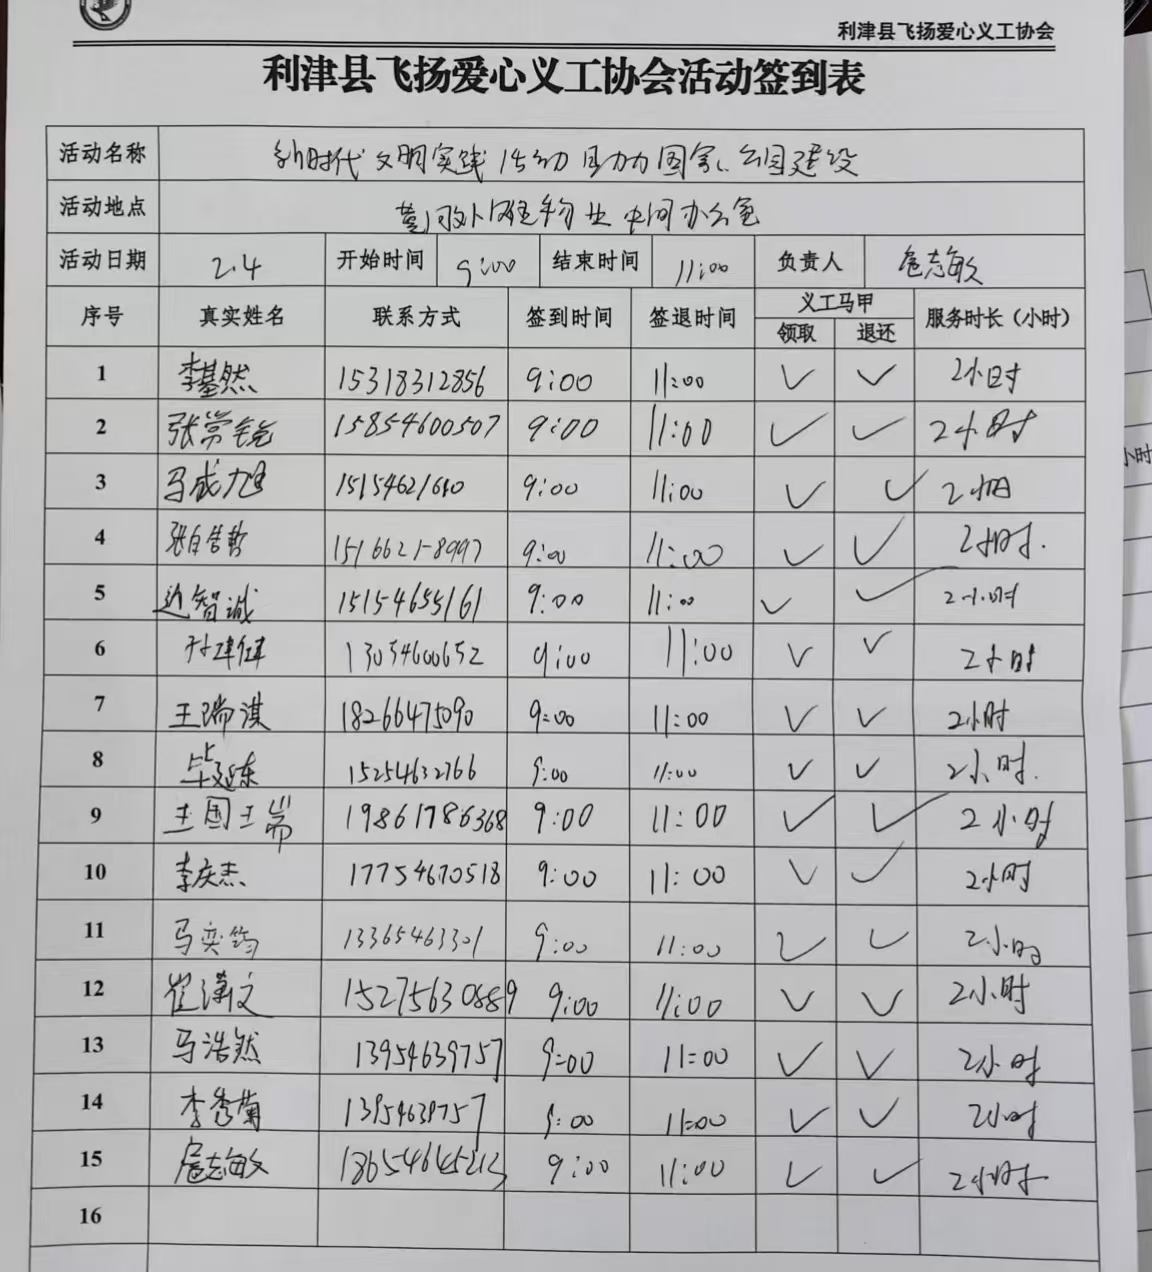 利津县飞扬爱心义工协会
利津县飞扬爱心义工协会活动签到表
活动名称 新时代文明实践活动助力国家公园建设
活动地点 物业中间办公室
活动日期 2.4 开始时间 9:00 结束时间 11:00 负责人 扈志敏
序号 真实姓名 联系方式 签到时间 签退时间 义工马甲 服务时长（小时）
领取 退还
1 李基然 15318312856 9:00 11:00 ✓ ✓ 2小时
2 张常锐 15854600507 9:00 11:00 ✓ ✓ 2小时
3 马成旭 9:00 11:00 ✓ ✓ 2小时
4 9:00 11:00 ✓ ✓ 2小时.
5 边智诚 15154655161 9:00 11:00 ✓ ✓ 2小时
6 13054600652 9:00 11:00 ✓ ✓ 2小时
7 王瑞淇 18266475090 9:00 11:00 ✓ ✓ 2小时
8 毕延东 15254632766 9:00 11:00 ✓ ✓ 2小时.
9 王国瑞 19861786368 9:00 11:00 ✓ ✓ 2小时
10 李庆杰 17754670518 9:00 11:00 ✓ ✓ 2小时
11 马奕筠 13365463301 9:00 11:00 ✓ ✓ 2小时
12 崔汉文 15275630889 9:00 11:00 ✓ ✓ 2小时
13 马浩然 13954639757 9:00 11:00 ✓ ✓ 2小时
14 李秀菊 13954639757 9:00 11:00 ✓ ✓ 2小时
15 扈志敏 9:00 11:00 ✓ ✓ 2小时
16
小时